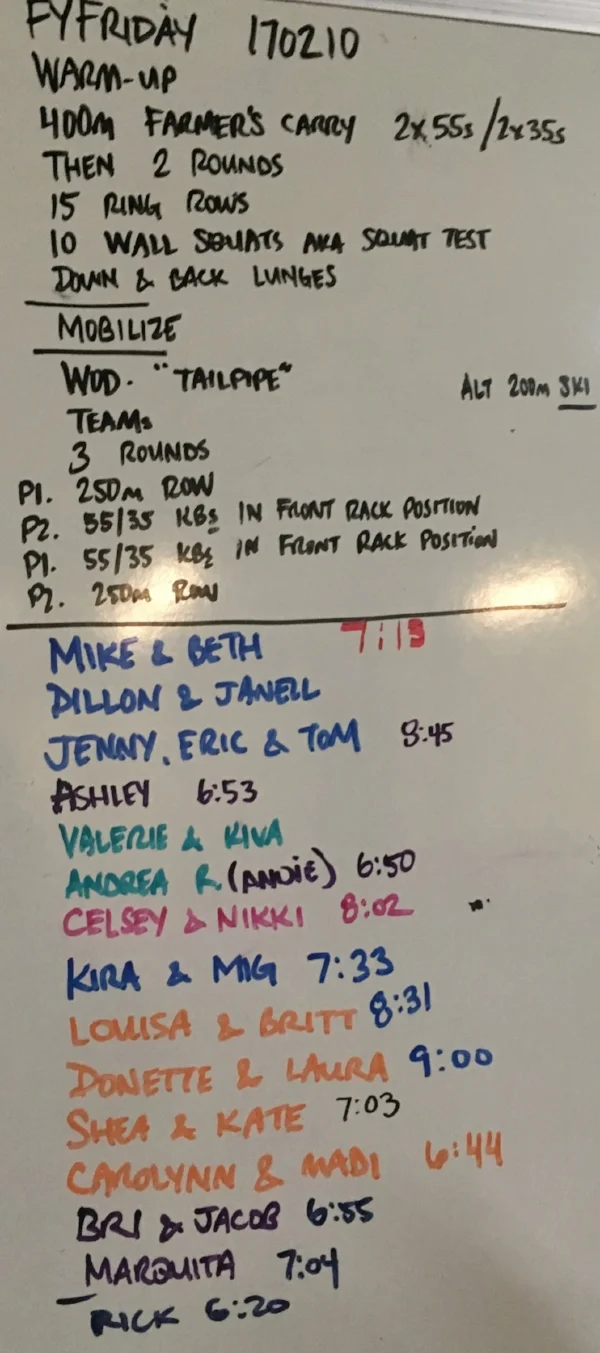 FYFRIDAY 170210
WARM-UP
400m FARMER'S CARRY 2x55s/2x35s
THEN 2 ROUNDS
15 RING ROWS
10 WALL SQUATS AKA SQUAT TEST
DOWN & BACK LUNGES
MOBILIZE
WOD. "TAILPIPE" ALT 200m SKI
TEAMS
3 ROUNDS
P1. 250m ROW
P2. 55/35 KBs IN FRONT RACK POSITION
P1. 55/35 KBs IN FRONT RACK POSITION
P2. 250m ROW
MIKE & BETH 7:13
DILLON & JANELL
JENNY, ERIC & TOM 8:45
ASHLEY 6:53
VALERIE & KIVA
ANDREA R. (ANDIE) 6:50
CELSEY & NIKKI 8:02
KIRA & MIG 7:33
LOUISA & BRITT 8:31
DONETTE & LAURA 9:00
SHEA & KATE 7:03
CAROLYNN & MADI 6:44
BRI & JACOB 6:55
MARQUITA 7:04
RICK 6:20